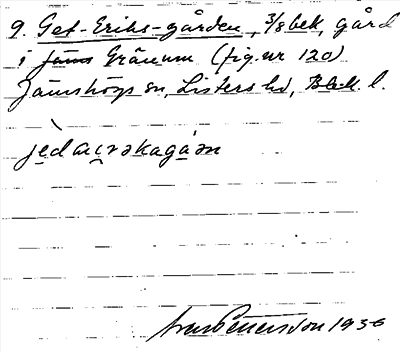 9. Get-Eriks-gården, 3/8 bek, gård
i Gränum (fig. nr 120)
Jämshögs sn, Listers hd, Blek. l.
Ivar Pettersson 1936